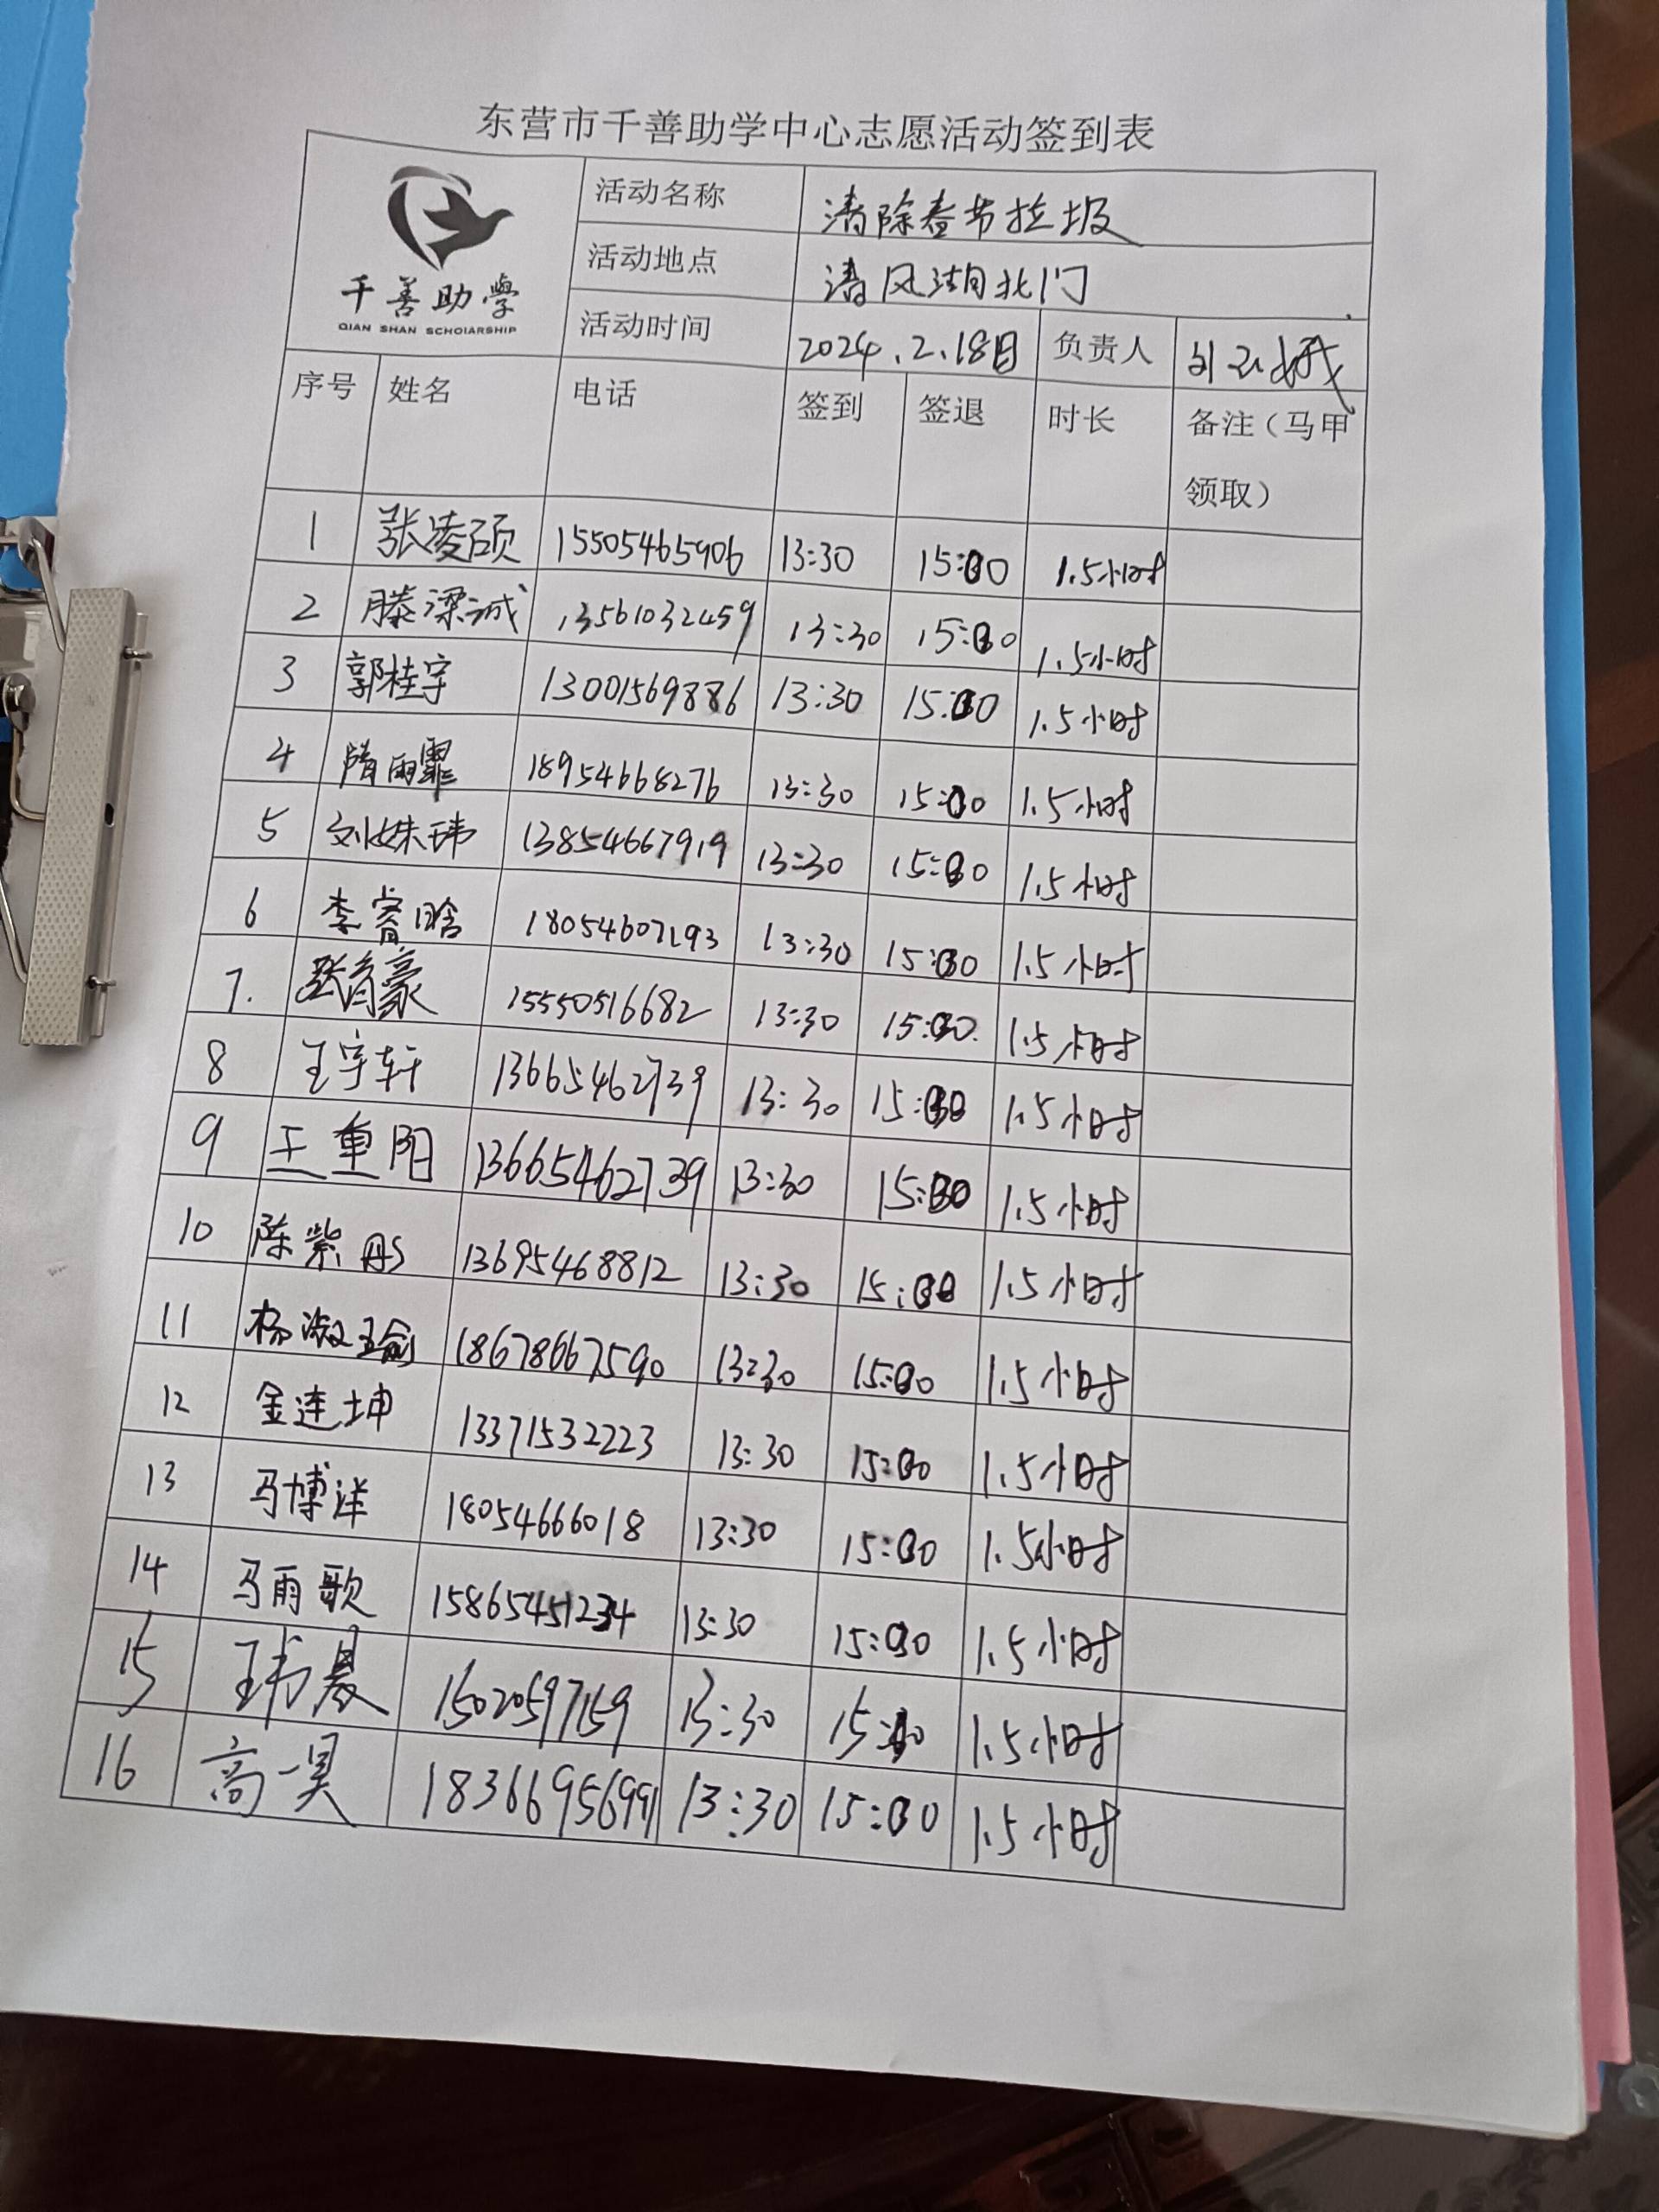 东营市千善助学中心志愿活动签到表
千善助學
QIAN SHAN SCHOLARSHIP
活动名称 清除春节垃圾
活动地点 清风湖北门
活动时间 2024.2.18日 负责人
序号 姓名 电话 签到 签退 时长 备注（马甲
领取）
1 张凌硕 15505465906 13:30 15:00 1.5小时
2 滕梁诚 13561032459 13:30 15:00 1.5小时
3 郭桂宇 13001569886 13:30 15:00 1.5小时
4 隋雨霏 18954668276 13:30 15:00 1.5小时
5 刘姝玮 13854667919 13:30 15:00 1.5小时
6 李睿晗 18054607193 13:30 15:00 1.5小时
7. 15550516682 13:30 15:00. 1.5小时
8 王宇轩 13665462739 13:30 15:00 1.5小时
9 王重阳 13665462739 13:30 15:00 1.5小时
10 陈紫彤 13695468812 13:30 15:00 1.5小时
11 杨淑瑜 18678667590 13:30 15:00 1.5小时
12 金连坤 13371532223 13:30 15:00 1.5小时
13 马博洋 18054666018 13:30 15:00 1.5小时
14 马雨歌 15865451234 13:30 15:00 1.5小时
15 15020597159 13:30 15:00 1.5小时
16 高一昊 18366956991 13:30 15:00 1.5小时